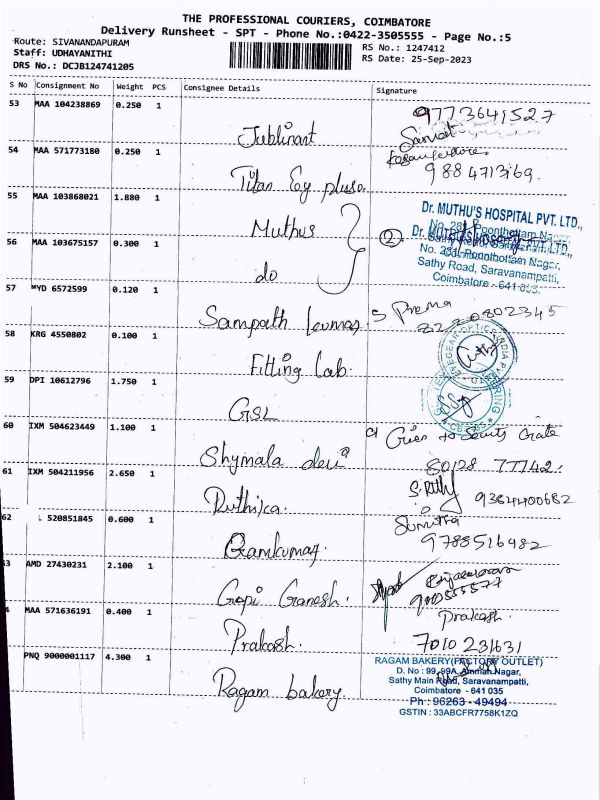 THE PROFESSIONAL COURIERS, COIMBATORE
Delivery Runsheet - SPT - Phone No.:0422-3505555 - Page No.:5
Route: SIVANANDAPURAM
RS No.: 1247412
Staff: UDHAYANITHI
RS Date: 25-Sep-2023
DRS No.: DCJB124741205
S No Consignment No Weight PCS Consignee Details Signature
53 MAA 104238869 0.250 1
Jublinant
9773641527
54 MAA 571773180 0.250 1
Titan Ey plus.
988 4713169.
55 MAA 103868021 1.880 1
Muthus
Dr. MUTHU'S HOSPITAL PVT. LTD.,
56 MAA 103675157 0.300 1
do
2
Dr. MUTHU'S HOSPITAL PVT. LTD.
No. 281, Poonthottam Nagar,
Sathy Road, Saravanampatti,
Coimbatore - 641 035.
57 MYD 6572599 0.120 1
Sampath kumar
S Prema
58 KRG 4550802 0.100 1
Fitting Lab.
59 DPI 10612796 1.750 1
GSL
60 IXM 504623449 1.100 1
Shymala devi
80128 77742.
61 IXM 504211956 2.650 1
Ruthika
9384400682
62 L 520851845 0.600 1
Ramkumar.
Sumitha
9788516982
3 AMD 27430231 2.100 1
Gopi Ganesh.
MAA 571636191 0.400 1
Prakash.
Prakash.
7010 231631
PNQ 9000001117 4.300 1
Ragam bakery.
RAGAM BAKERY(FACTORY OUTLET)
D. No : 99, 99A, Amman Nagar,
Sathy Main Road, Saravanampatti,
Coimbatore - 641 035
Ph : 96263 - 49494
GSTIN : 33ABCFR7758K1ZQ